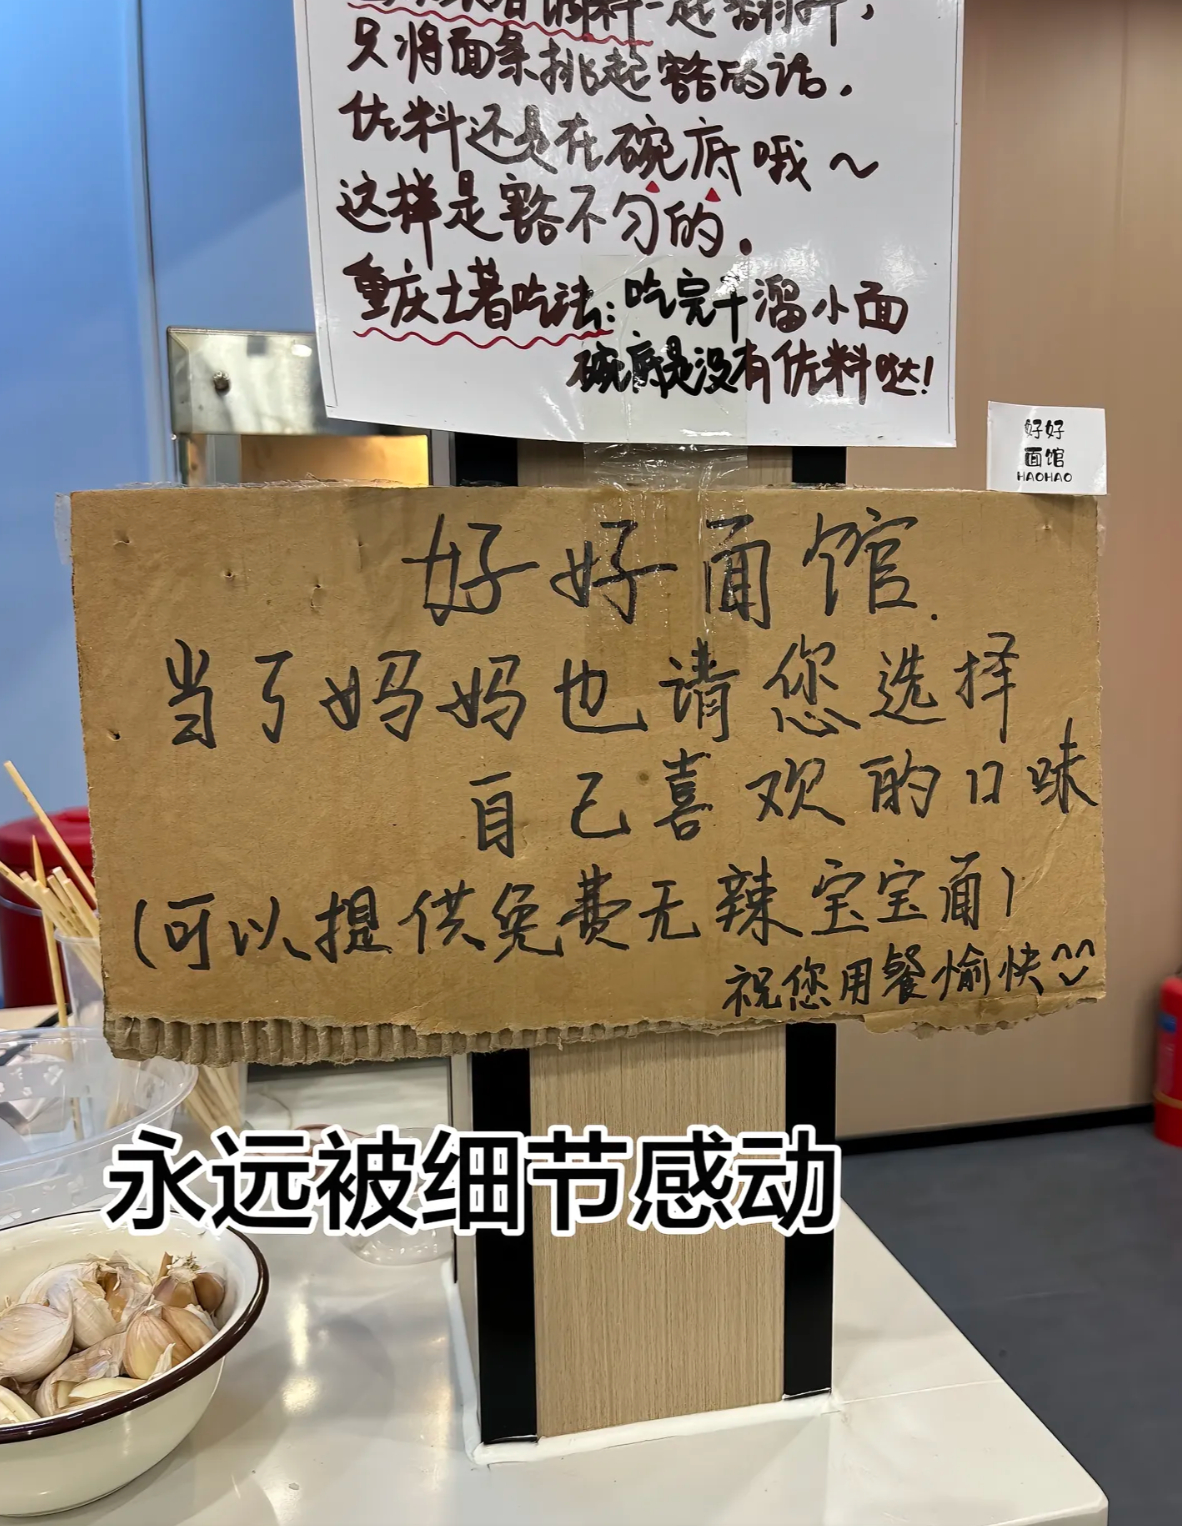 只将面条挑起豁的话.
佐料还是在碗底哦～
这样是豁不匀的.
重庆土著吃法:吃完干溜小面
碗底是没有佐料哒!
好好
面馆
HAOHAO
好好面馆.
当了妈妈也请您选择
自己喜欢的口味
(可以提供免费无辣宝宝面)
祝您用餐愉快^^
永远被细节感动